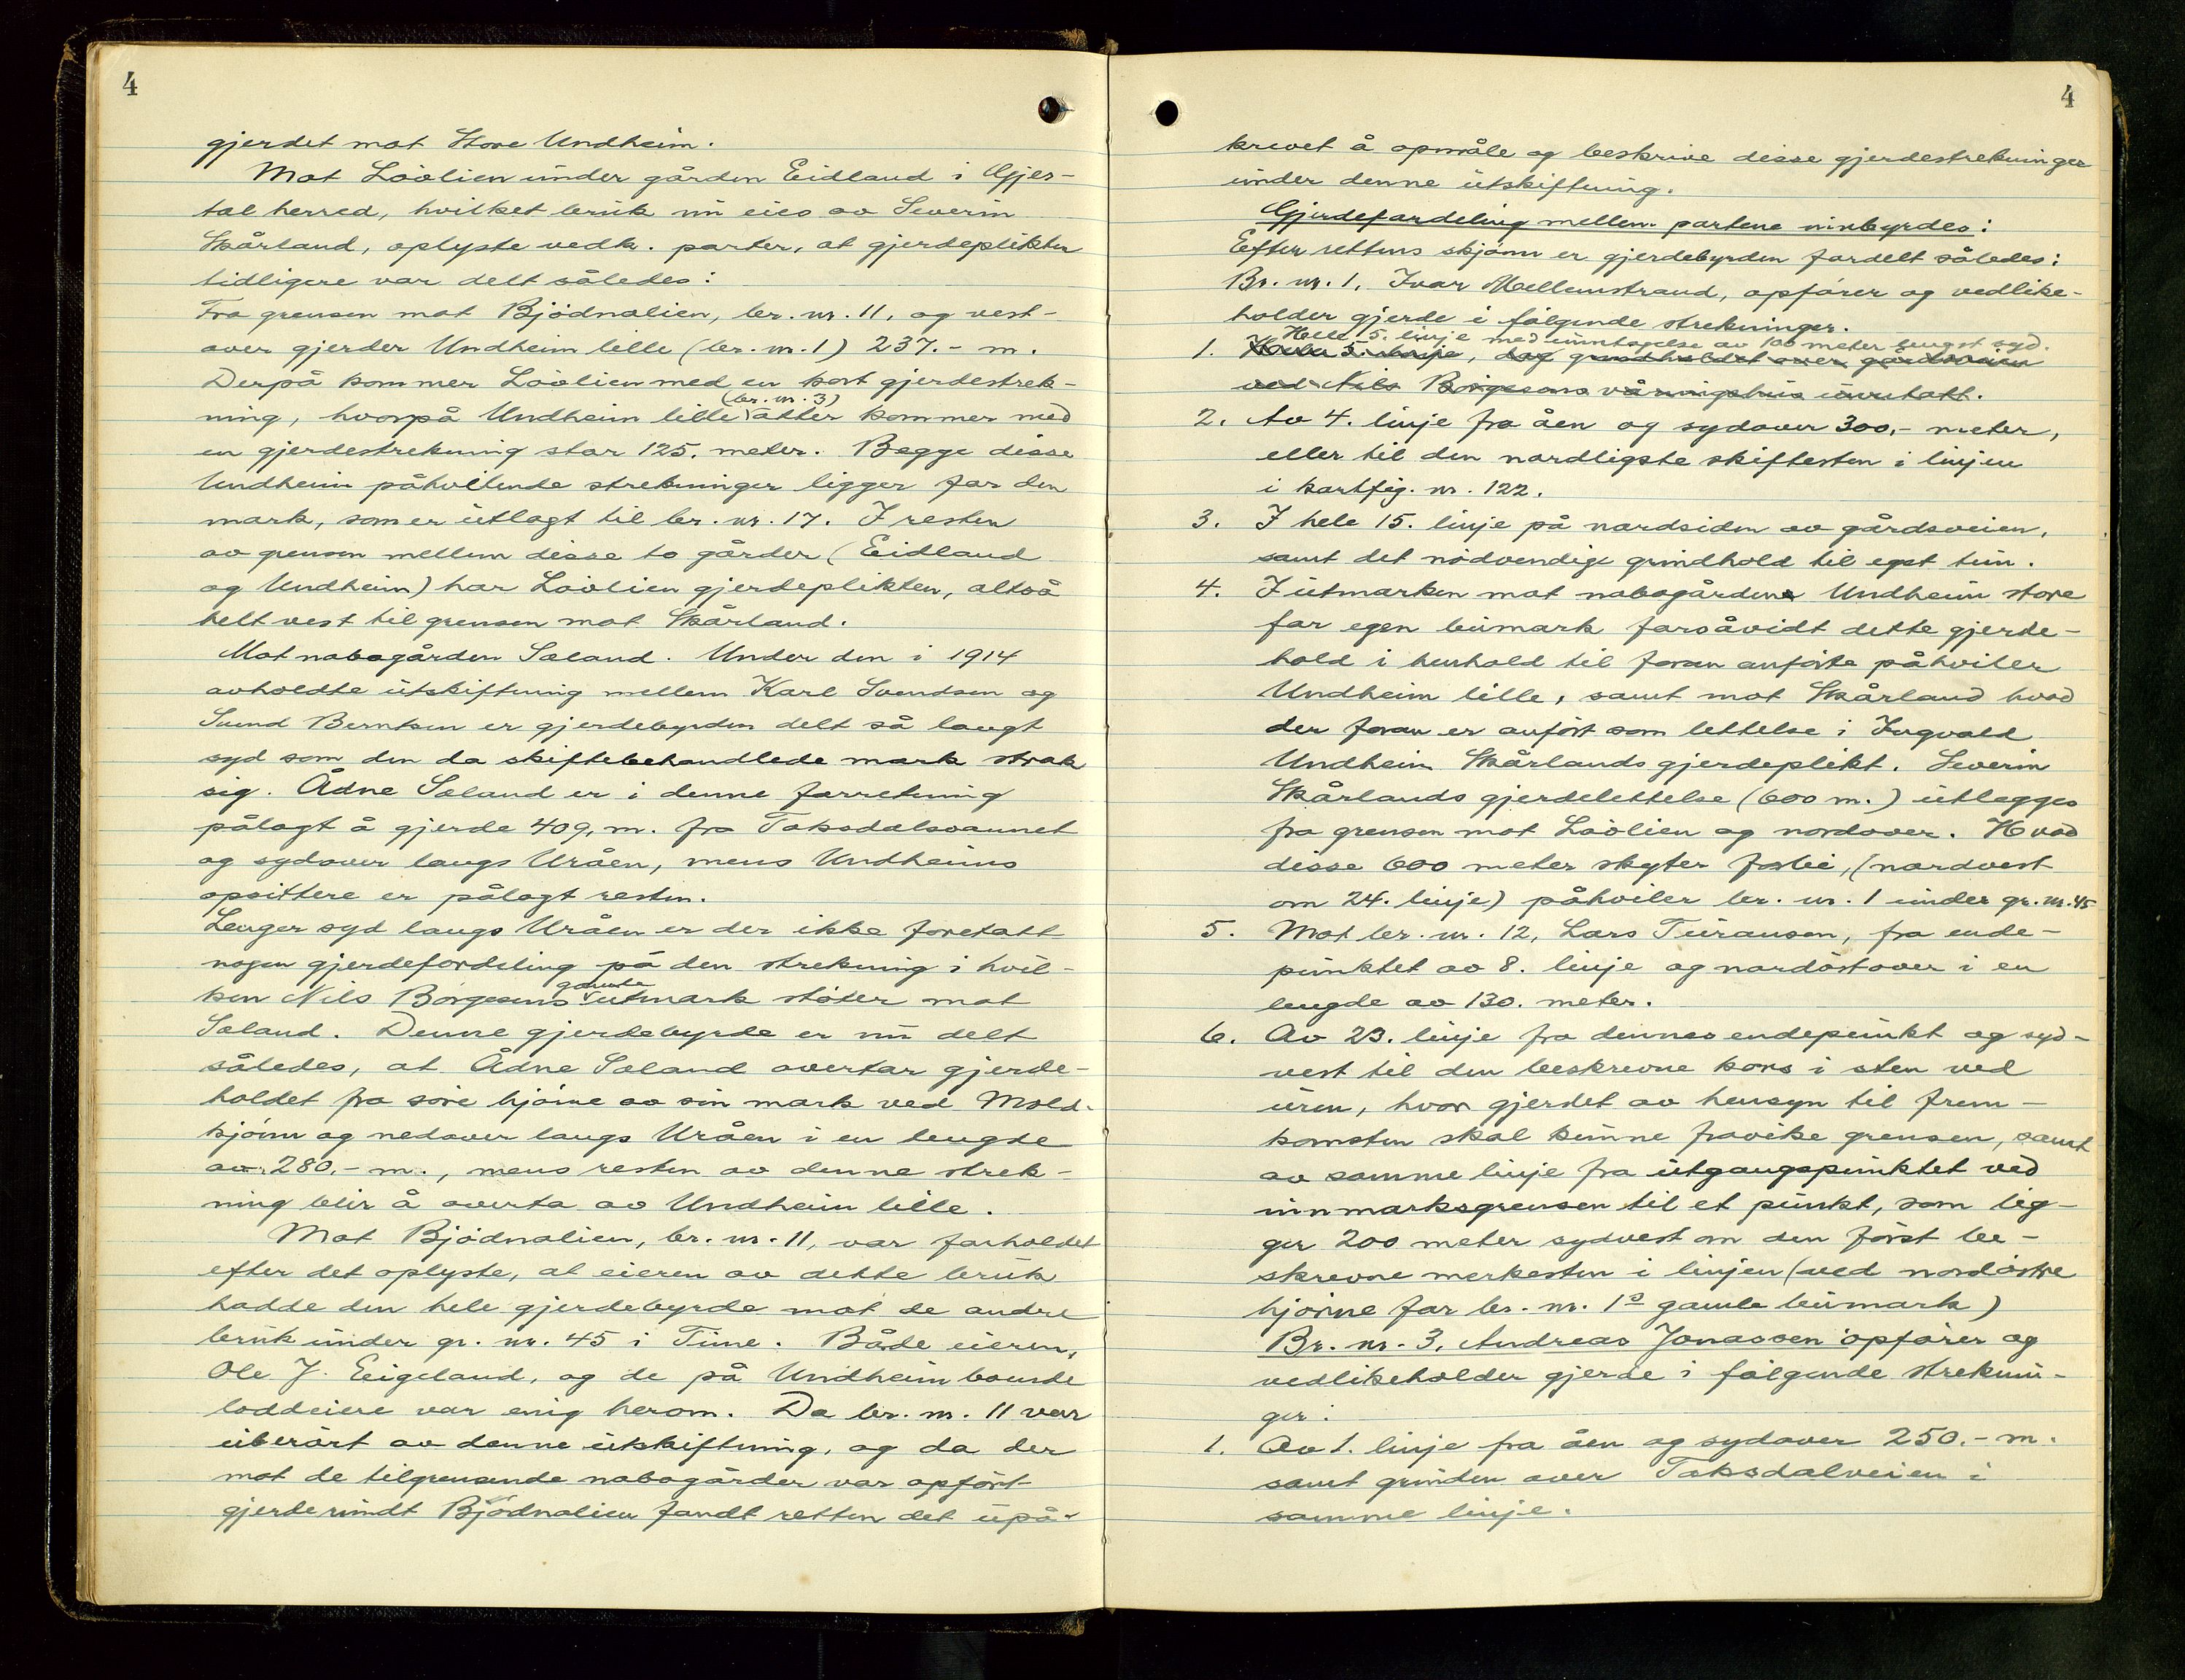 4
gjerdet mot Store Undheim.
Mot Löölien under gården Eidland i Gjes-
tal herred, hvilket bruk nu eies av Severin
Skårland, oplyste vedk. parter, at gjerdeplikten
tidligere var delt således:
Fra grensen mot Bjödnalien, br. nr. 11, og vest-
over gjerder Undheim lille (br. nr. 1) 237.- m.
Derpå kommer Löölien med en kort gjerdestrek-
(br. nr. 3)
ning, hvorpå Undheim lille åtter kommer med
en gjerdestrekning stor 125. meter. Begge disse
Undheim påhvilende strekninger ligger for den
mark, som er utlagt til br. nr. 17. I resten
av grensen mellem disse to gårder (Eidland
og Undheim) har Löölien gjerdeplikten, altså
helt vest til grensen mot Skårland.
Mot nabogården Saland. Under den i 1914
avholdte utskiftning mellem Karl Svendsen og
Svend Berntsen er gjerdebyrden delt så langt
syd som den da skiftebehandlede mark strak
sig. Ådne Saland er i denne forretning
pålagt å gjerde 409, m. fra Taksdalsvannet
og sydover langs Uråen, mens Undheims
opsittere er pålagt resten.
Lenger syd langs Uråen er der ikke foretatt
nogen gjerdefordeling på den strekning i hvil-
gamle
ken Nils Börgesens utmark støter mot
Saland. Denne gjerdebyrde er nu delt
således, at Ådne Saland overtar gjerde-
holdet fra søre hjörne av sin mark ved Mold-
kjönn og nedover langs Uråen i en lengde
av 280.- m., mens resten av denne strek-
ning blir å overta av Undheim lille.
Mot Bjödnalien, br. nr. 11, var forholdet
efter det oplyste, at eieren av dette bruk
hadde den hele gjerdebyrde mot de andre
bruk under gr. nr. 45 i Time. Både eieren,
Ole J. Eigeland, og de på Undheim boende
loddeiere var enig herom. Da br. nr. 11 var
uberört av denne utskiftning, og da der
mot de tilgrensende nabogårder var opfört
gjerde rundt Bjödnalien fandt retten det upå-
4
krevet å opmåle og beskrive disse gjerdestrekninger
under denne utskiftning.
Gjerdefordeling mellem partene innbyrdes:
Efter rettens skjönn er gjerdebyrden fordelt således:
Br. nr. 1, Ivar Mellemstrand, opförer og vedlike-
holder gjerde i fölgende strekninger.
Hele 5. linje med unntagelse av 100 meter lengst syd.
1. Hele 5. linje, dog grindholdet over gårdsveien
ved Nils Börgesens våningshus unntatt.
2. Av 4. linje fra åen og sydover 300,- meter,
eller til den nordligste skiftesten i linjen
i kartfig. nr. 122.
3. I hele 15. linje på nordsiden av gårdsveien,
samt det nödvendige grindhold til eget tun.
4. I utmarken mot nabogården Undheim store
for egen bumark forsåvidt dette gjerde-
hold i henhold til foran anförte påhviler
Undheim lille, samt mot Skårland hvad
der foran er anfört som lettelse i Ingvald
Undheim Skårlands gjerdeplikt. Severin
Skårlands gjerdelettelse (600 m.) utlegges
fra grensen mot Löölien og nordover. Hvad
disse 600 meter skyter forbi, (nordvest
om 24. linje) påhviler br. nr. 1 under gr. nr. 45
5. Mot br. nr. 12, Lars Turansen, fra ende-
punktet av 8. linje og nordöstover i en
lengde av 130. meter.
6. Av 23. linje fra dennes endepunkt og syd-
vest til den beskrevne kors i sten ved
uren, hvor gjerdet av hensyn til frem-
komsten skal kunne fravike grensen, samt
av samme linje fra utgangspunktet ved
innmarksgrensen til et punkt, som lig-
ger 200 meter sydvest om den först be-
skrevne merkesten i linjen (ved nordöstre
hjörne for br. nr. 1s gamle bumark)
Br. nr. 3, Andreas Jonassen opförer og
vedlikeholder gjerde i fölgende streknin-
ger:
1. Av 1. linje fra åen og sydover 250.- m.
samt grinden over Taksdalveien i
samme linje.